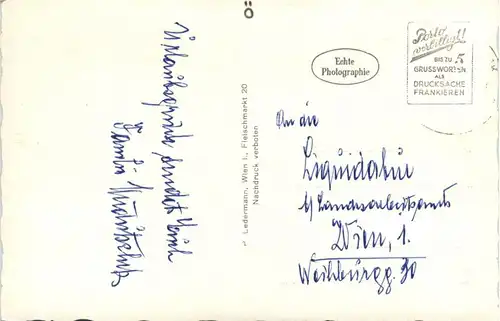 Ö
Porto
verbilligt!
BIS ZU 5
GRUSSWORTEN
ALS
DRUCKSACHE
FRANKIEREN
Echte
Photographie
Ledermann, Wien I., Fleischmarkt 20
Nachdruck verboten
Urlaubsgrüße sendet
Familie
An die
Liquidatur
Landesarbeitsamts
Wien, 1.
Weihburgg. 30